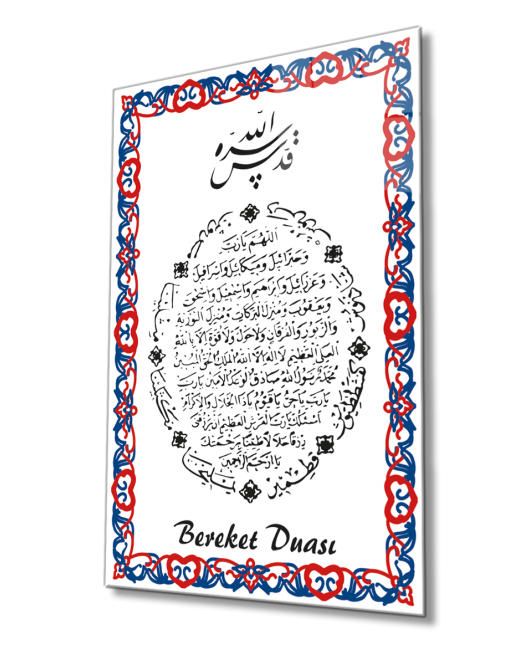 قدس الله سره
اللهم يا رب
و جبرائيل و ميكائيل و اسرافيل
و عزرائيل و ابراهيم و اسمعيل و اسحق
و يعقوب و منزل البركات و منزل التورية
والزبور والفرقان ولا حول ولا قوة الا بالله
العلى العظيم لا اله الا الله الملك الحق المبين
محمد رسول الله صادق الوعد الامين يا رب
يا رب يا حى يا قيوم يا ذا الجلال والاكرام
اسئلك يا رب العرش العظيم ان ترزقنى
رزقا حلالا طيبا برحمتك
يا ارحم الراحمين
Bereket Duası